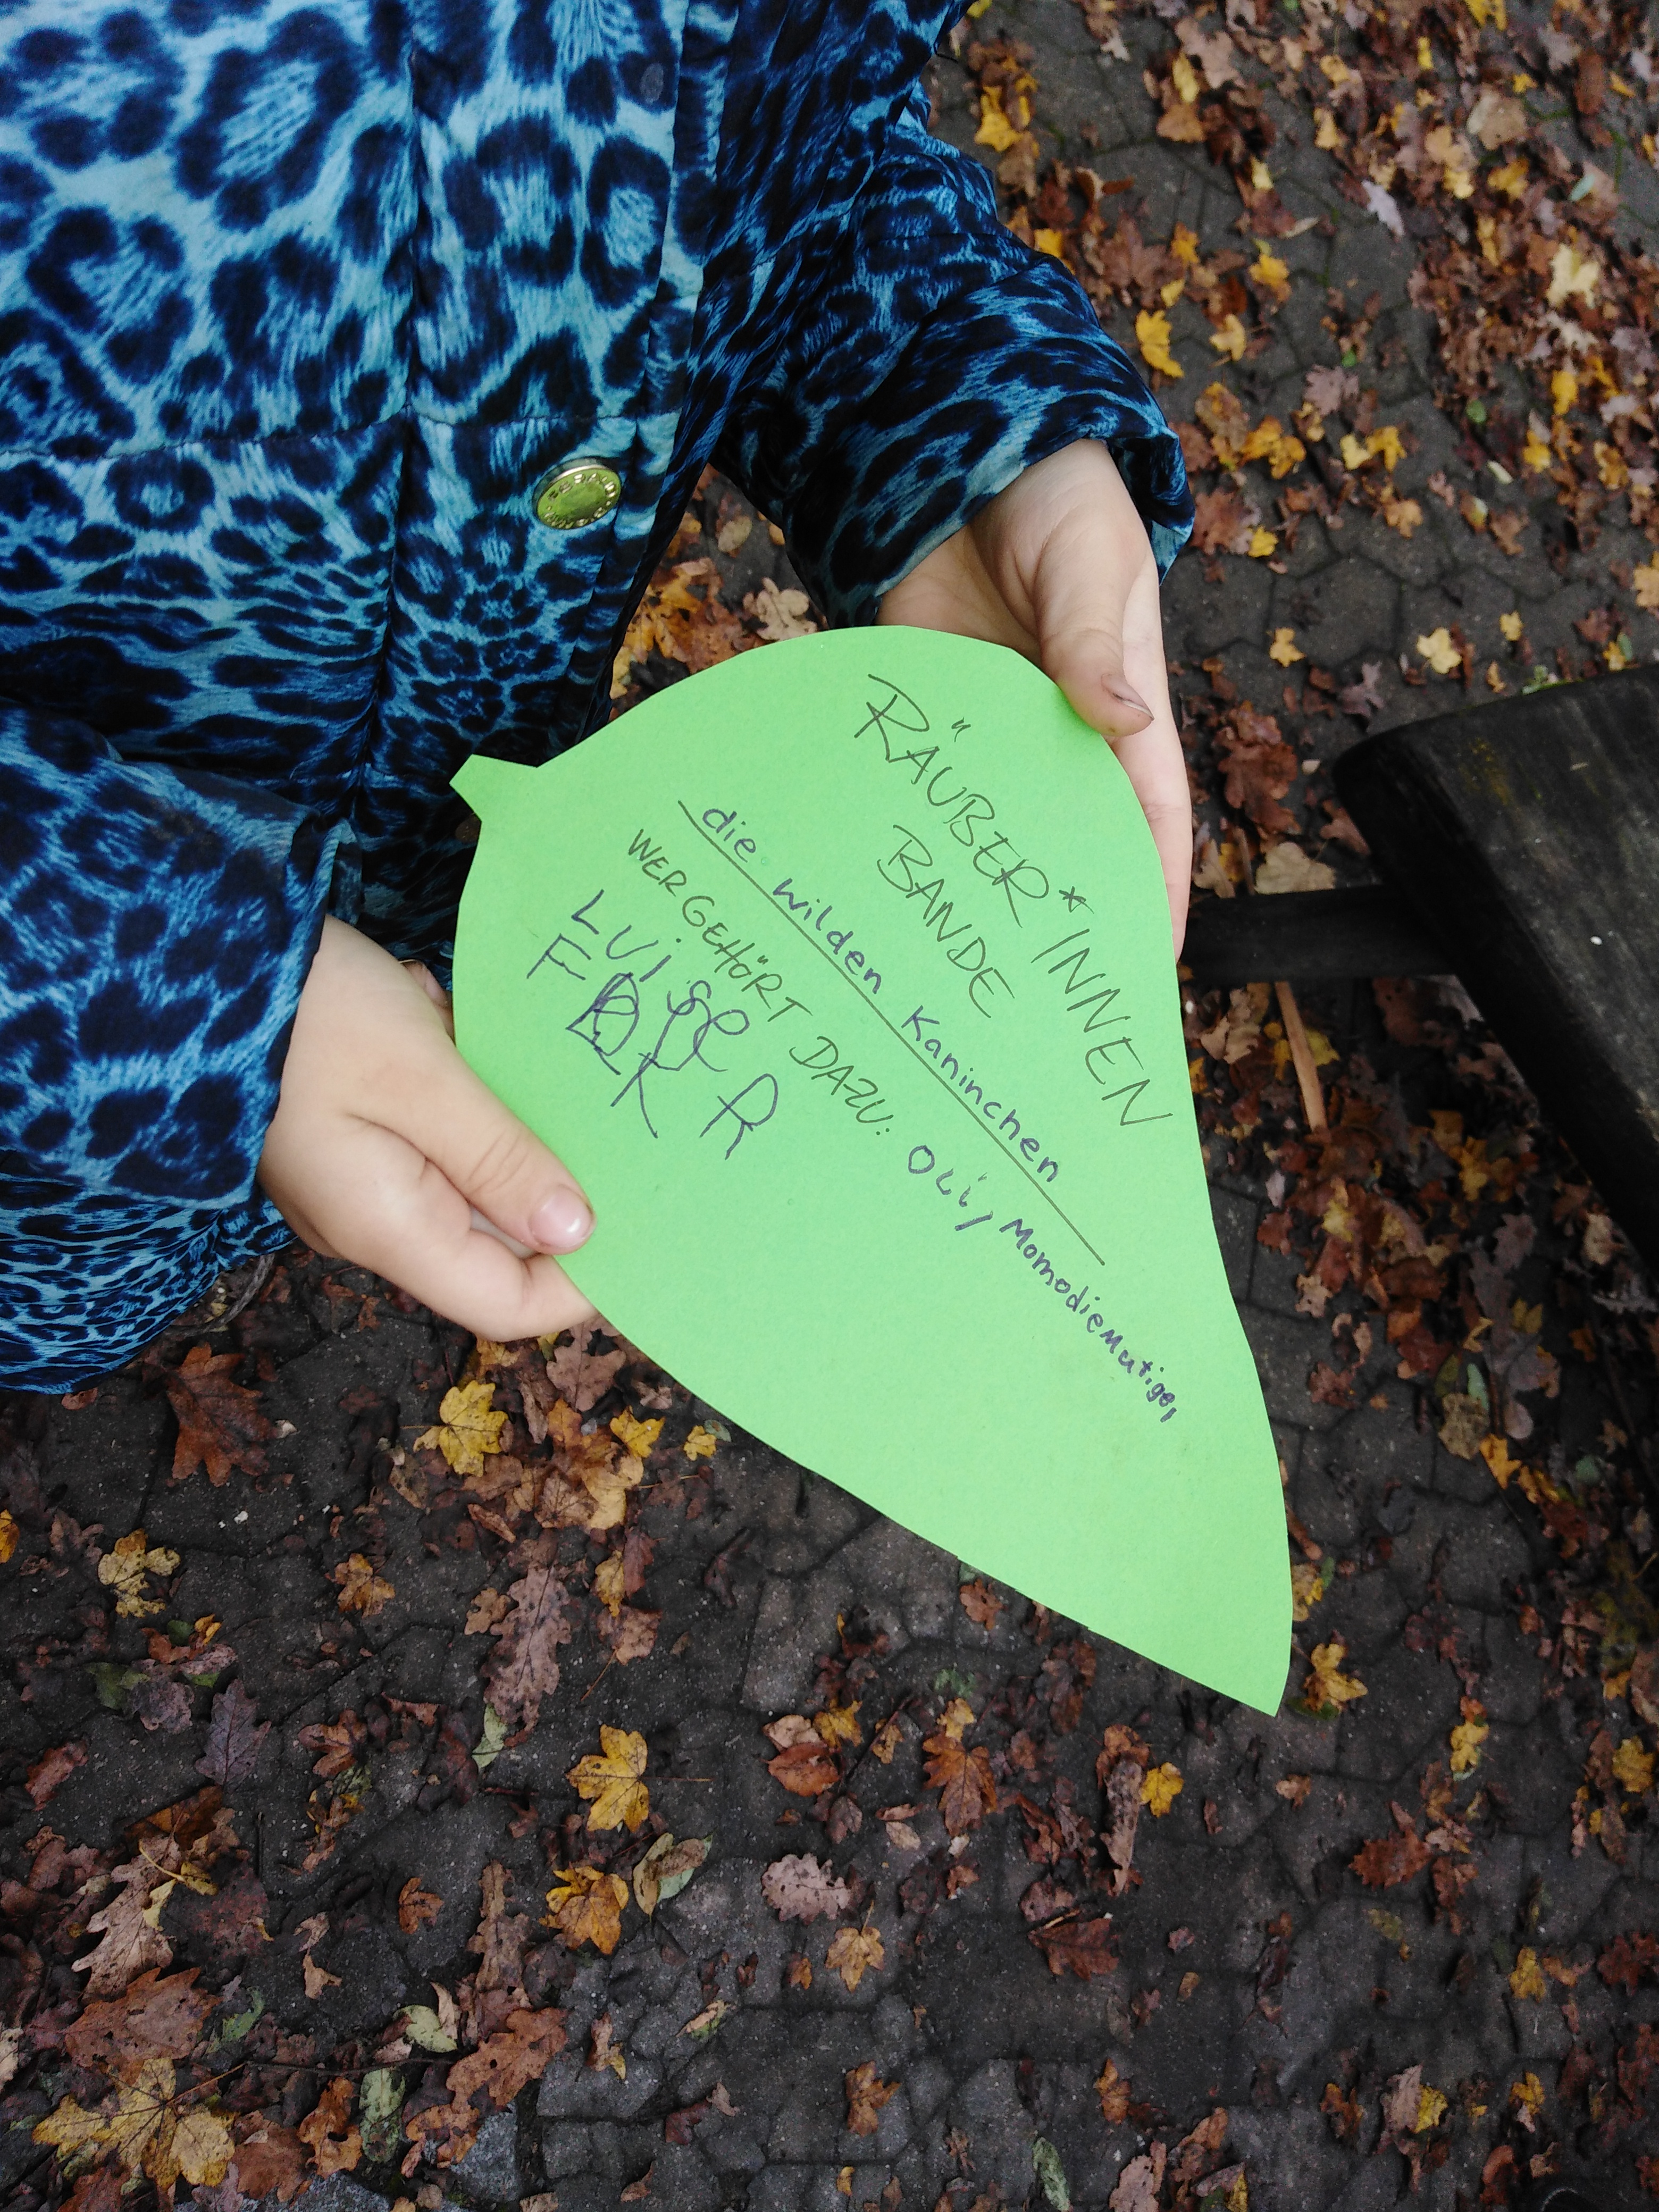 RÄUBER*INNEN
BANDE
die wilden Kaninchen
WER GEHÖRT DAZU: OLi, MomodieMutige,
LUise